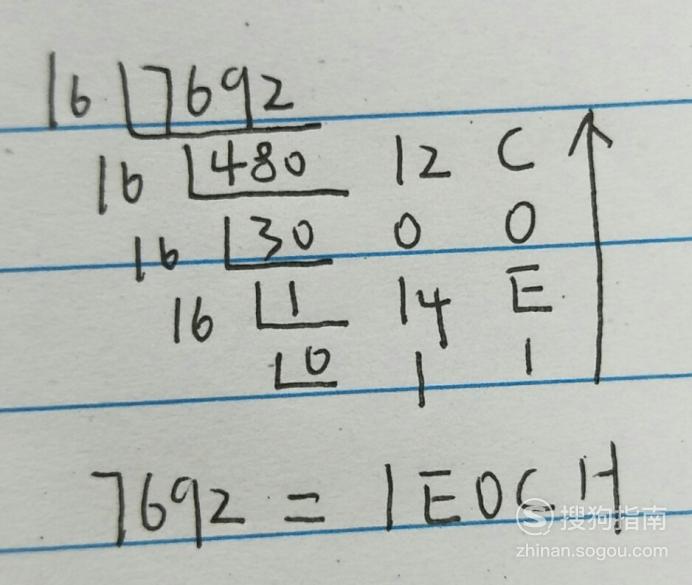 16 7692
16 480 12 C
16 30 0 0
16 1 14 E
0 1 1
7692 = 1E0CH
搜狗指南
zhinan.sogou.com